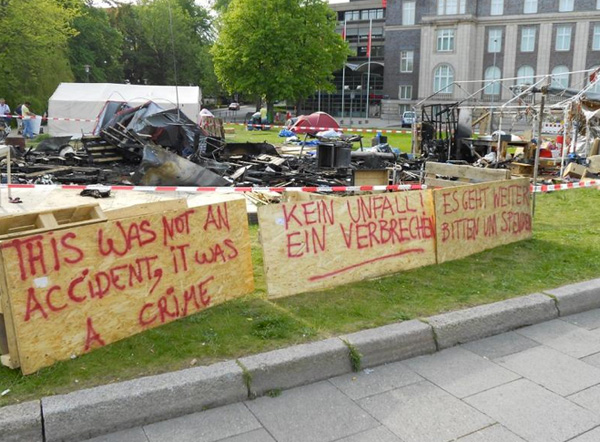 THIS WAS NOT AN
ACCIDENT, IT WAS
A CRIME
KEIN UNFALL
EIN VERBRECHEN
ES GEHT WEITER
BITTEN UM